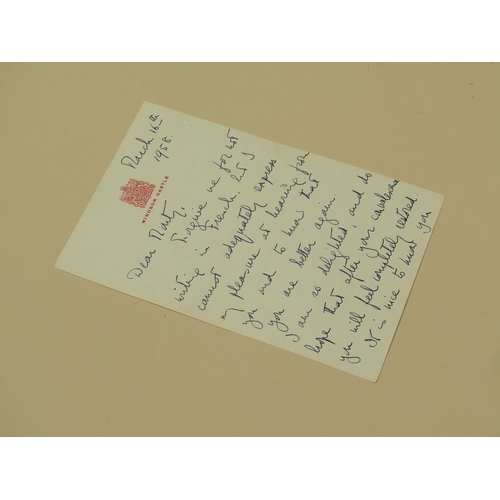 WINDSOR CASTLE
March 16th
1958.
Dear Monty,
Forgive me for not
writing in French. But I
cannot adequately express
my pleasure at hearing from
you and to know that
you are better again.
I am so delighted, and do
hope that after your convalescence
you will feel completely restored.
It is nice to know you